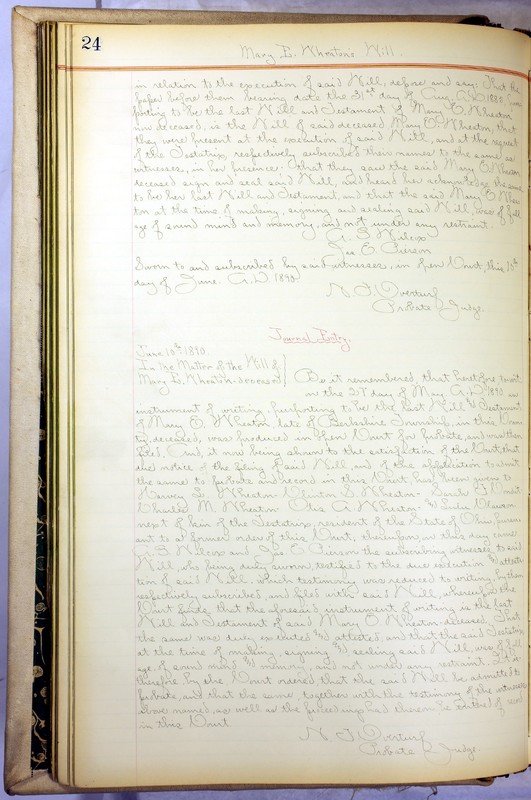 24
Mary E. Wheaton's Will.
in relation to the execution of said Will, depose and say: That the
paper before them bearing date the 31st day of Aug. A.D. 1880, pur-
porting to be the last Will and Testament of Mary E. Wheaton
now deceased, is the Will of said deceased Mary E. Wheaton, that
they were present at the execution of said Will, and at the request
of the Testatrix respectively subscribed their names to the same as
witnesses, in her presence: that they saw the said Mary E. Wheaton
deceased sign and seal said Will, and heard her acknowledge the same
to be her last Will and Testament, and that the said Mary E. Whea-
ton at the time of making, signing and sealing said Will, was of full
age of sound mind and memory, and not under any restraint.
G. S. Wilcox
Jas. E. Pierson
Sworn to and subscribed by said witnesses, in open Court, this 10th
day of June. A.D. 1890.
N. F. Overturf
Probate Judge.
Journal Entry.
June 10th 1890.
In the Matter of the Will of
Mary E. Wheaton - deceased
Be it remembered, that heretofore, to wit
on the 27 day of May A.D. 1890 an
instrument of writing, purporting to be the last Will & Testament
of Mary E. Wheaton late of Berkshire Township, in this Coun-
ty, deceased, was produced in open Court for probate, and was then
filed. And, it now being shown to the satisfaction of the Court, that
due notice of the filing of said Will, and of the application to admit
the same to probate and record in this Court, has been given to
Harvey L. Wheaton - Clinton S. Wheaton -
Charles M. Wheaton A. Wheaton - &
next of kin of the Testatrix, resident of the State of Ohio, pursu-
ant to a former order of this Court, thereupon, on this day came
G. S. Wilcox and Jas. E. Pierson the subscribing witnesses to said
Will, who being duly sworn, testified to the due execution & attesta-
tion of said Will, which testimony was reduced to writing, by them
respectively subscribed, and filed with said Will, whereupon the
Court finds, that the aforesaid instrument of writing is the last
Will and Testament of said Mary E. Wheaton, deceased. That
the same was duly executed & attested, and that the said Testatrix
at the time of making, signing & sealing said Will, was of full
age, of sound mind & memory, and not under any restraint. It is
therefore by the Court ordered that the said Will be admitted to
probate, and that the same, together with the testimony of the witnesses
above named, as well as the proceedings had thereon, be Entered of record
in this Court
N. F. Overturf
Probate Judge.